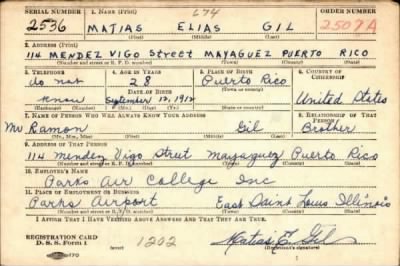 SERIAL NUMBER 1. NAME (Print) 674 ORDER NUMBER
2536 MATIAS ELIAS GIL 2507A
(First) (Middle) (Last)
2. ADDRESS (Print)
114 MENDEZ VIGO Street MAYAGUEZ PUERTO RICO
(Number and street or R. F. D. number) (Town) (County) (State)
3. TELEPHONE 4. AGE IN YEARS 5. PLACE OF BIRTH 6. COUNTRY OF CITIZENSHIP
do not 28 Puerto Rico
DATE OF BIRTH (Town or county)
know September 12, 1912 United States
(Exchange) (Number) (Mo.) (Day) (Yr.) (State or country)
7. NAME OF PERSON WHO WILL ALWAYS KNOW YOUR ADDRESS 8. RELATIONSHIP OF THAT PERSON
Mr Ramon Gil Brother
(Mr., Mrs., Miss) (First) (Middle) (Last)
9. ADDRESS OF THAT PERSON
114 Mendez Vigo Street Mayaguez Puerto Rico
(Number and street or R. F. D. number) (Town) (County) (State)
10. EMPLOYER'S NAME
Parks Air College Inc
11. PLACE OF EMPLOYMENT OR BUSINESS
Parks Airport East Saint Louis Illinois
(Number and street or R. F. D. number) (Town) (County) (State)
I AFFIRM THAT I HAVE VERIFIED ABOVE ANSWERS AND THAT THEY ARE TRUE.
REGISTRATION CARD
D. S. S. Form 1 1202 Matias E. Gil
(Registrant's signature)